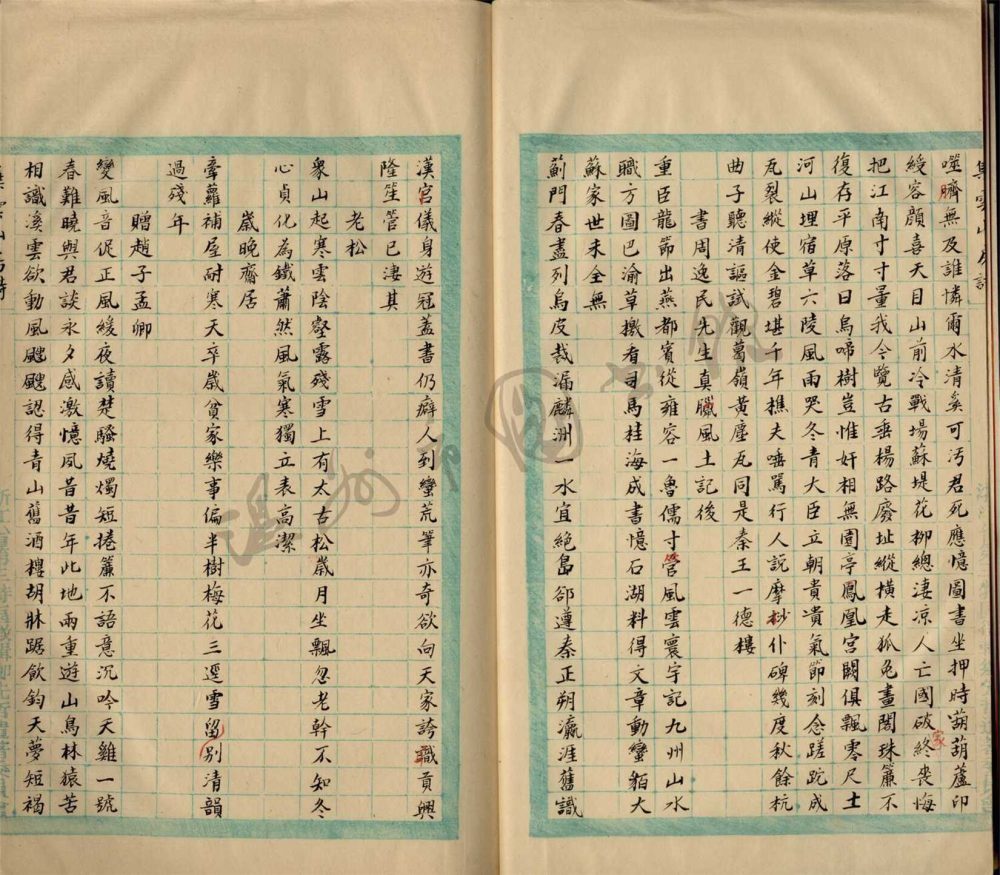 噬臍無及誰憐爾水清奚可污君死應憶圖書坐押時葫葫蘆印
綬容顏喜天目山前冷戰場蘇堤花柳總淒凉人亡國破終喪悔
家
把江南寸寸量我今覽古垂楊路廢址縱橫走狐兔畫閣珠簾不
復存平原落日烏啼樹豈惟奸相無園亭鳳凰宮闕俱飄零尺土
河山埋宿草六陵風雨哭冬青大臣立朝貴氣節刻念蹉跎成
瓦裂縱使金碧堪千年樵夫唾罵行人說摩抄仆碑幾度秋餘杭
曲子聽清謳試觀葛嶺黃塵瓦同是秦王一德樓
書周逸民先生真臘風土記後
重臣龍節出燕都賓從雍容一魯儒寸管風雲寰宇記九州山水
職方圖巴渝草檄看司馬桂海成書憶石湖料得文章動蠻貊大
蘇家世未全無
薊門春盡列烏皮裁漏麟洲一水宜絕島郤遵秦正朔瀛涯舊識
漢宮儀身遊冠蓋書仍癖人到蠻荒筆亦奇欲向天家誇職貢興
隆笙管已淒其
老松
衆山起寒雲陰壑露殘雪上有太古松歲月坐飄忽老幹不知冬
心貞化為鐵蕭然風氣寒獨立表高潔
歲晚齋居
牽蘿補屋耐寒天卒歲貧家樂事偏半樹梅花三逕雪留別清韻
過殘年
贈趙子孟卿
變風音促正風緩夜讀楚騷燒燭短捲簾不語意沉吟天雞一號
春難曉與君談永夕感激憶夙昔昔年此地兩重遊山鳥林猿苦
相識溪雲欲動風颼颼認得青山舊酒樓胡牀踞飲鈞天夢短褐